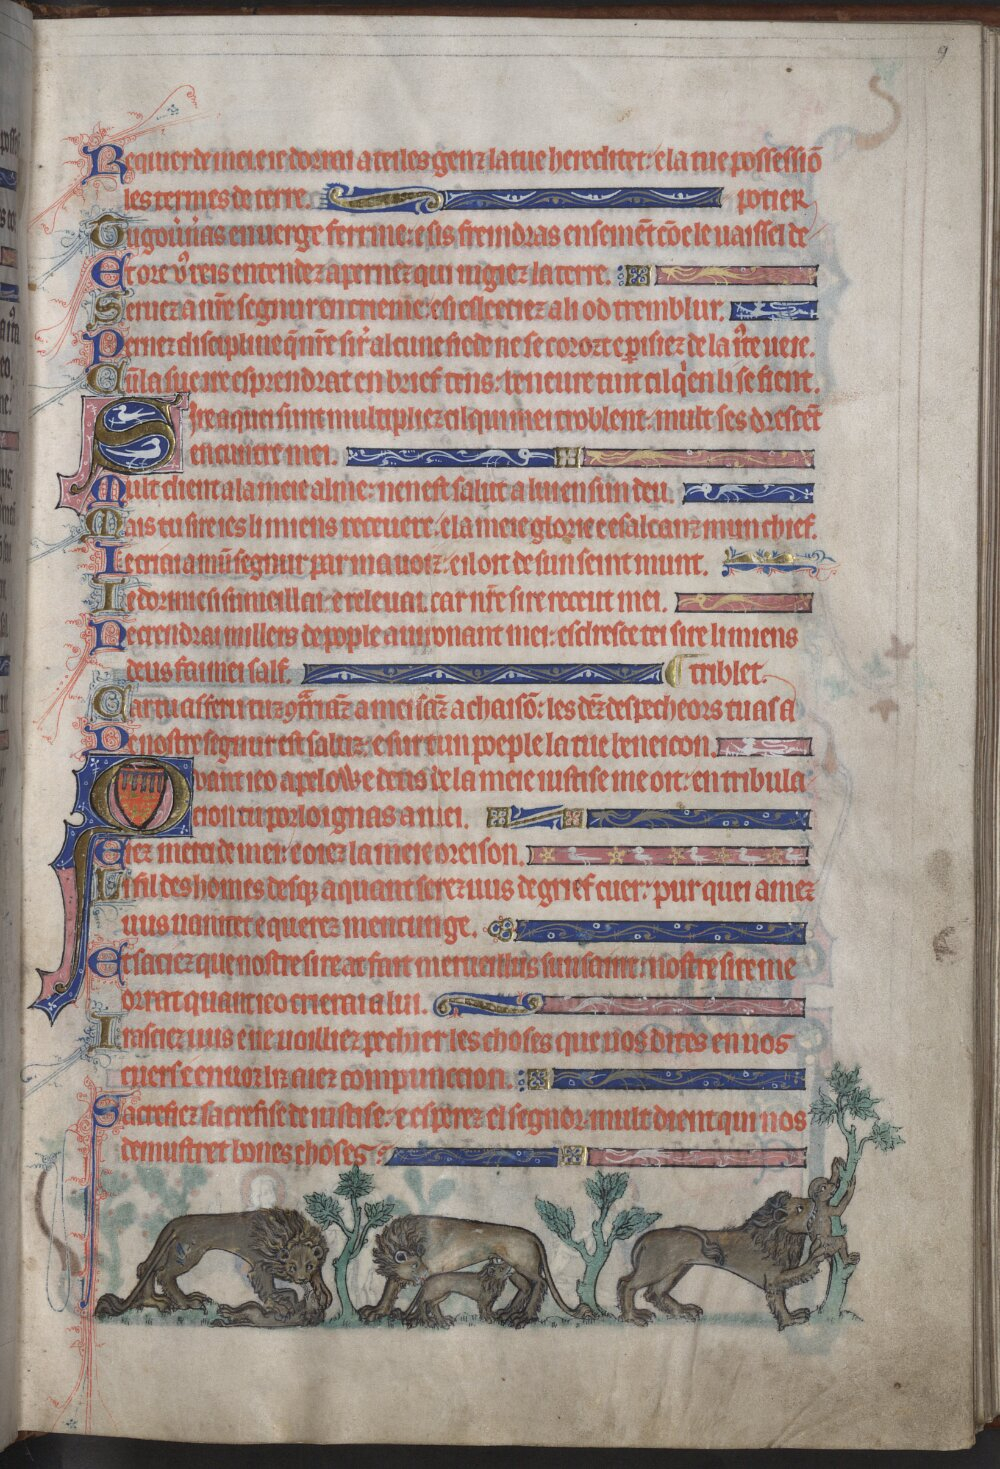 9
Requier de mei e ie dorrai a tei les genz la tue hereditet: e la tue possessiō
les termes de terre.
potier
Tu goūnas en uerge ferrine: e sis freindras ensemēt cōe le uaissel de
Et ore ỽ reis entendez apernez qui iugiez la terre.
Seruez a nr̄e segnur en crieme: e si esleeciez a li od tremblur.
Pernez discipline q̄ nr̄e sir̄ alcune fiede ne se corozt e perissiez de la
Cū la sue ire esprendrat en brief tens: beneure tuit cil q'en li se fient.
Sire a quei sunt multipliez cil qui mei troblent: mult ses drescēt
encuntre mei.
Mult dient a la meie alme: nen est salut a lui en sun deu.
Mais tu sire ies li miens receuere: e la meie glorie e esalcanz mun chief.
Ie criai a mū segnur par ma uoiz: e il oit de sun seint munt.
Ie dormi e si sumeillai: e releuai. car nr̄e sire receut mei.
Ne crendrai millers de pople auironant mei: esdresce tei sire li miens
deus fai mei salf.
triblet.
Car tu as feru tuz a mei achaisō: les dēz des pecheors tu as
De nostre segnur est saluz: e sur tun poeple la tue beneicon.
Quant ieo apelowe deus de la meie iustise me oit: en tribula
cion tu porloignas a mei.
Eiez merci de mei: e oiez la meie oreison.
E fil des homes desq; a quant serez uus de grief cuer: pur quei amez
uus uanitet e querez mencunge.
Et saciez que nostre sire at fait merueillus sun saint: nostre sire me
orrat quant ieo crierai a lui.
Irasciez uus e ne uoilliez pechier les choses que uos dites en uos
cuers e en uoz liz aiez compunction.
Sacrefiez sacrefise de iustise: e esperez el segnor. mult dient qui nos
demustret bones choses: